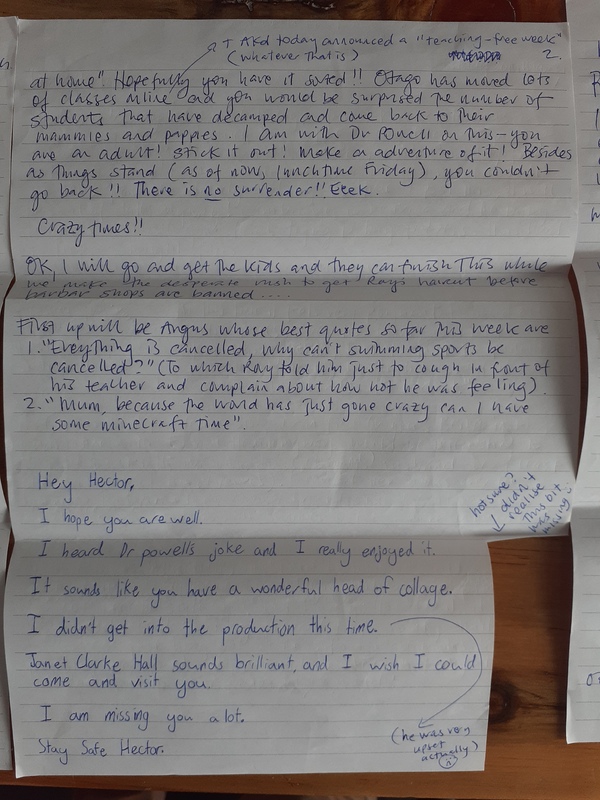 ↑ AKd today announced a "teaching-free week"
(whatever that is)
2.
at home". Hopefully you have it sorted!! Otago has moved lots
of classes online and you would be surprised the number of
students that have decamped and come back to their
mammies and pappies. I am with Dr Powell on this - you
are an adult! Stick it out! Make a adventure of it! Besides
as things stand (as of now, lunchtime Friday), you couldn't
go back!! There is no surrender!! Eeek.
Crazy times!!
OK, I will go and get the kids and they can finish this while
we make the desperate rush to get Ray's haircut before
barbar shops are banned ....
First up will be Angus whose best quotes so far this week are
1. "Everything is cancelled, why can't swimming sports be
cancelled?" (To which Ray told him just to cough in front of
his teacher and complain about how hot he was feeling).
2. "Mum, because the world has just gone crazy can I have
some minecraft time".
Hey Hector,
I hope you are well.
not sure?
didn't
realise
this bit
was
missing
I heard Dr powells joke and I really enjoyed it.
It sounds like you have a wonderful head of collage.
I didn't get into the production this time.
Janet Clarke Hall sounds brilliant, and I wish I could
come and visit you.
I am missing you a lot.
Stay Safe Hector.
(he was very
upset
actually)